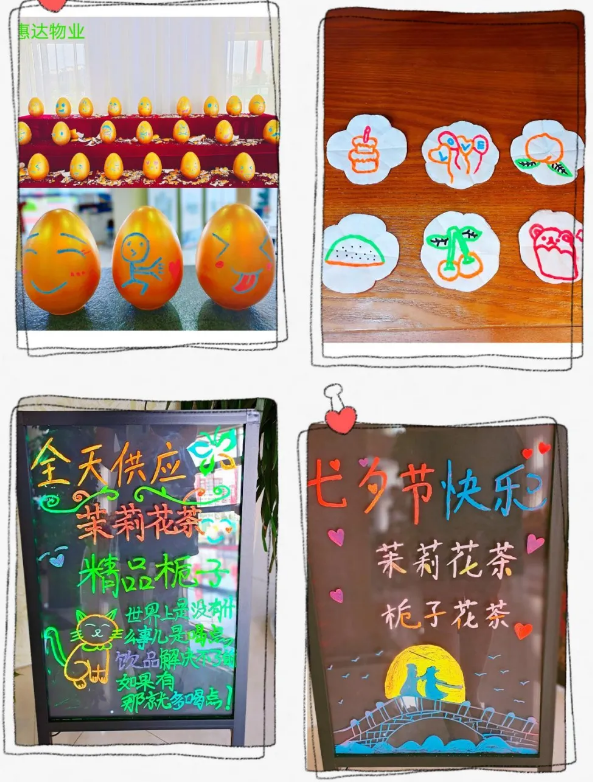 惠达物业
全天供应
茉莉花茶
精品栀子
世界上是没有什
么事儿是喝点
饮品解决不
如果有
那就多喝点！
七夕节快乐
茉莉花茶
栀子花茶